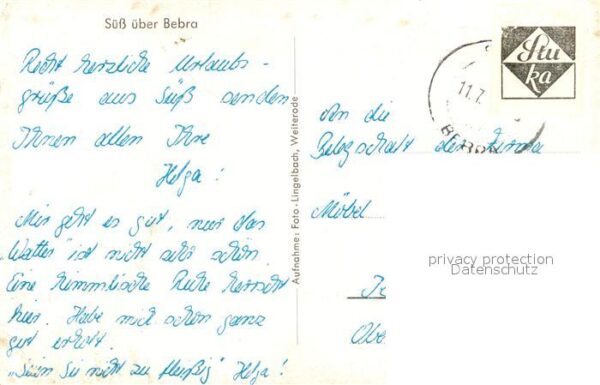 Süß über Bebra
Recht herzliche Urlaubs-
grüße aus Süß senden
Ihnen allen Ihre
Helga!
Mir geht es gut, nur das
"Wetter" ist nicht sehr schön.
Eine himmlische Ruhe herrscht
hier. Habe mich schon ganz
gut erholt.
"Seien Sie nicht zu fleißig" Helga!
Aufnahme: Foto-Lingelbach, Weiterode
Stu
ka
11.7.
BEBRA
An die
Belegschaft der Firma
Möbel
privacy protection
Datenschutz
Obe